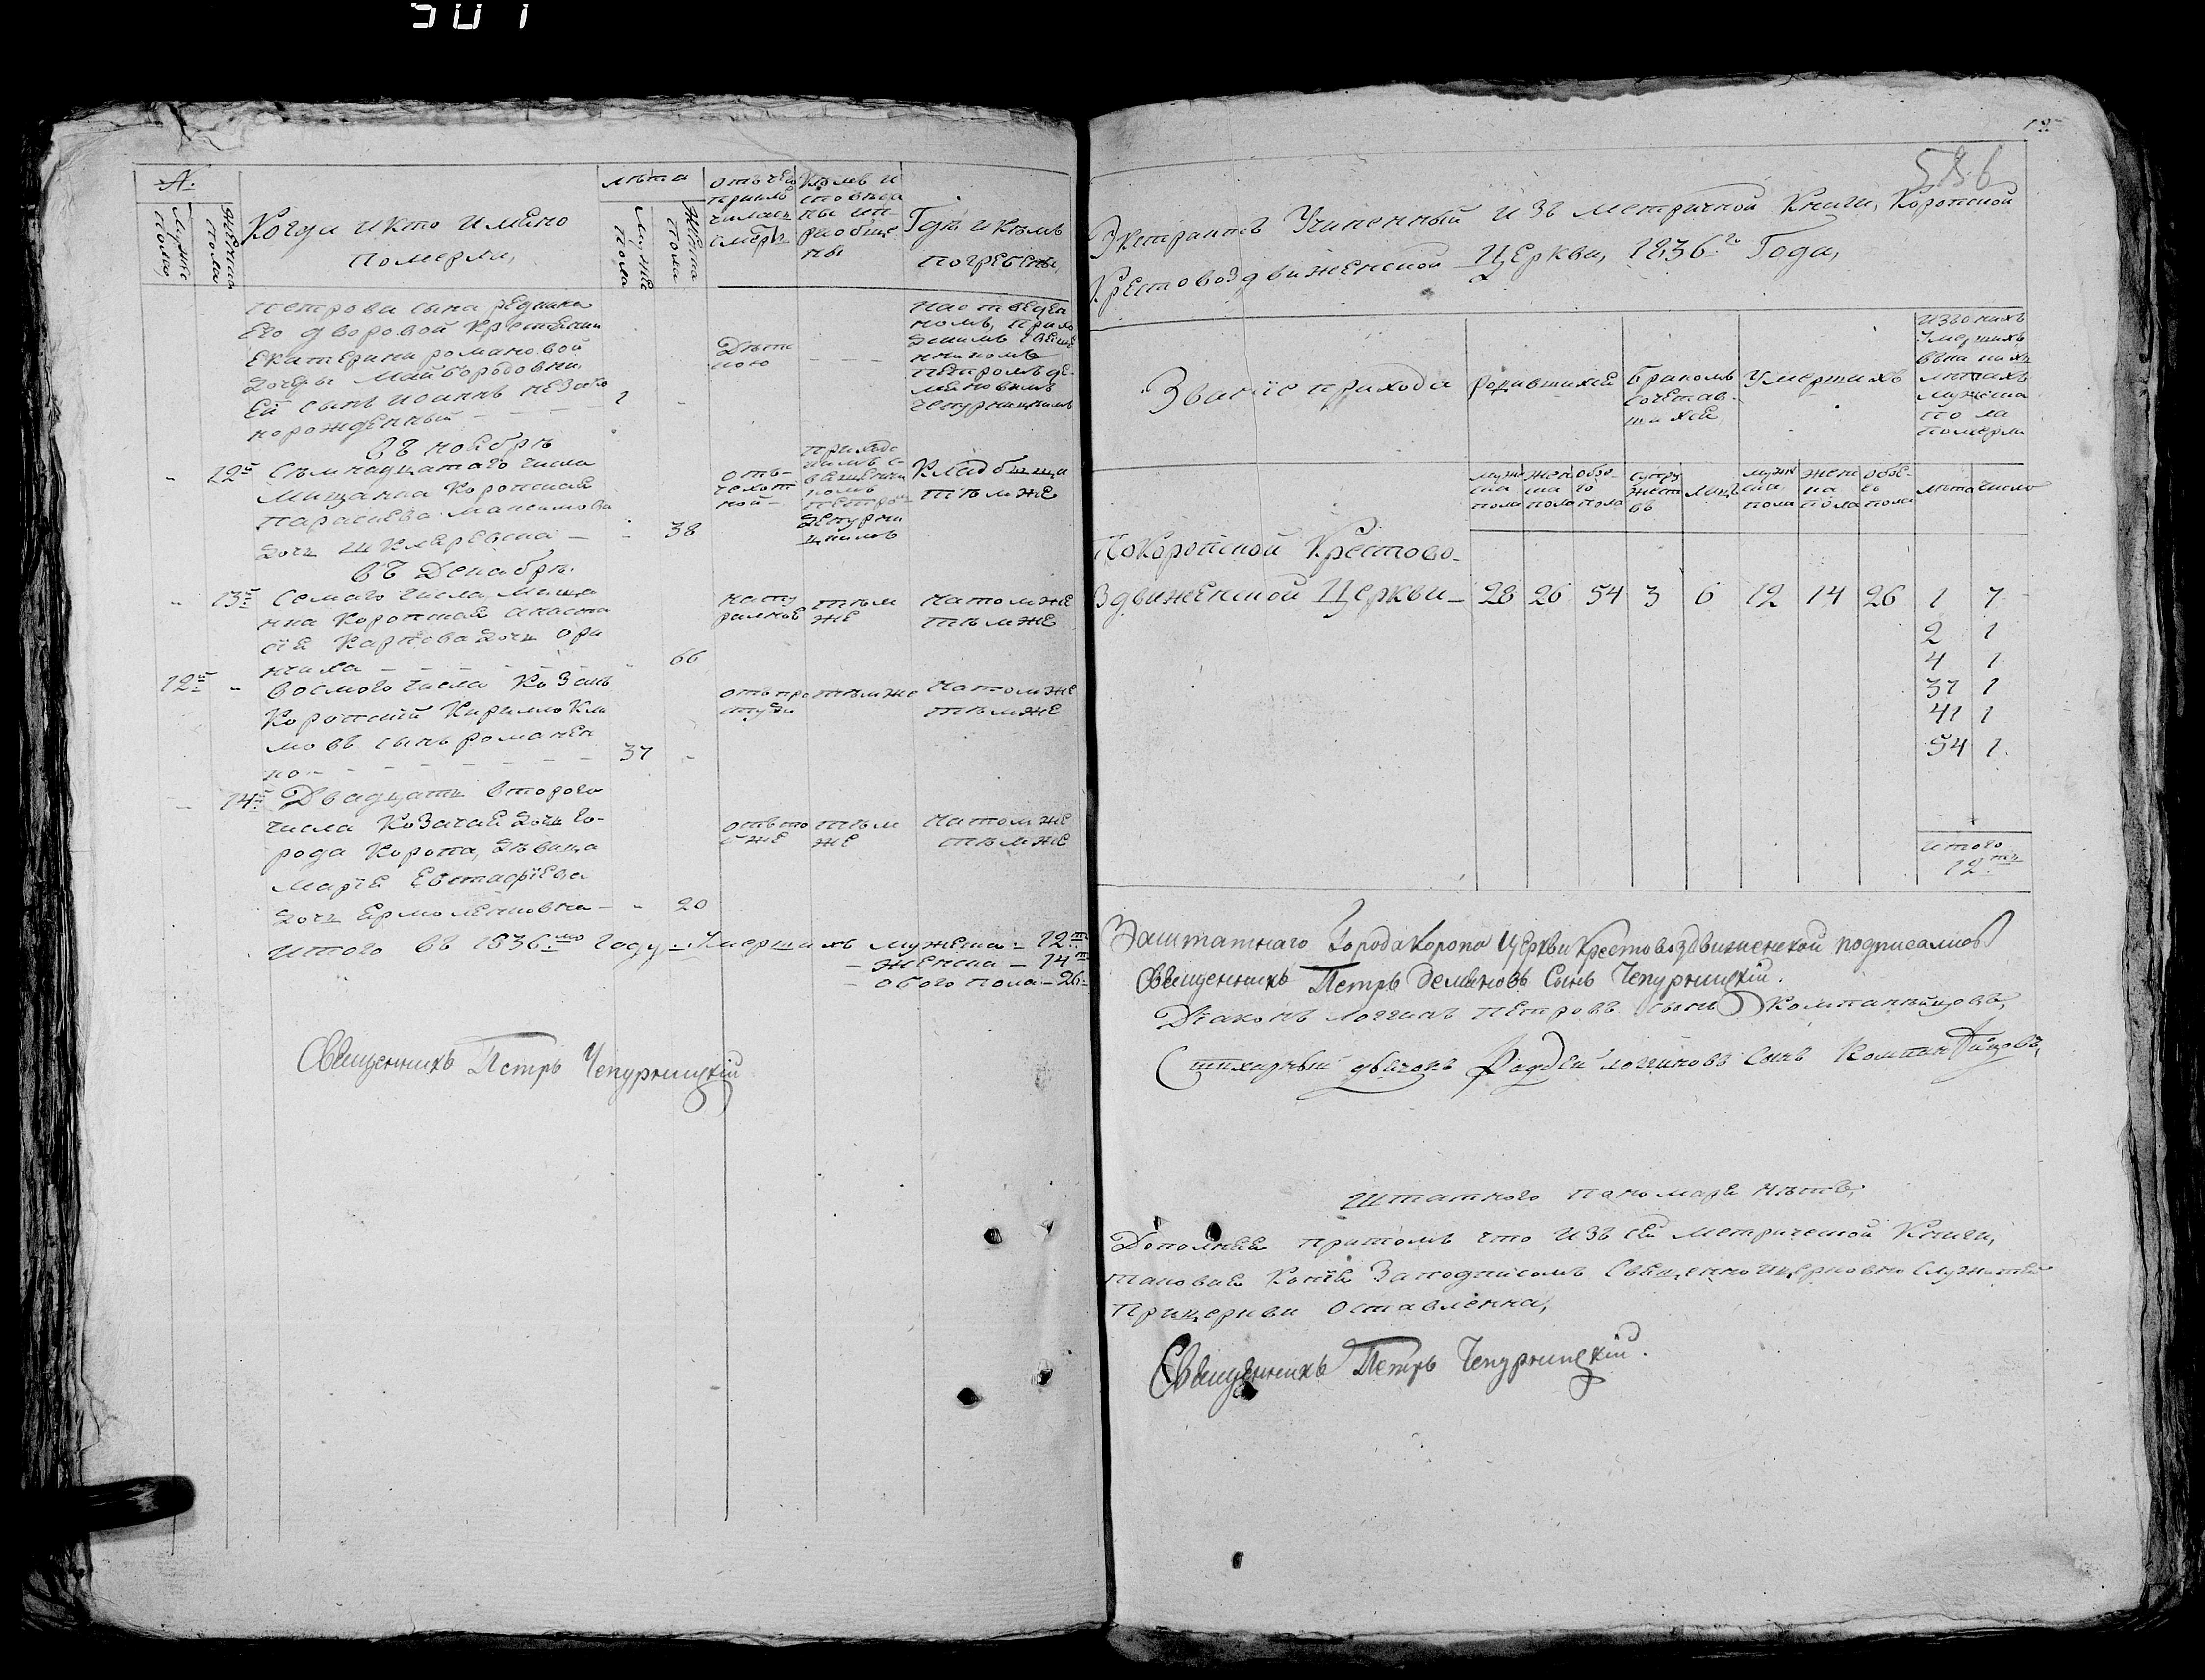 501
№.
Мужеска пола
Женска пола
Когда и кто имяно
Померли,
лѣта
Муже пола
Женска пола
отъ чего
приклю
чилась
смерть
Кѣмъ и
сповѣда
ны и п
риобще
ны
Гдѣ и кѣмъ
погребены,
петрова сына редкина
Его дворовой крестьянки
Екатерини романовой
дочеры Майбородовни
Ей сынъ иоаннъ незако
норожденный - - - - 1 -
Дѣтс
кою
- - -
на отведен
номъ, прихо
дскимъ свяще
нникомъ
петромъ де
мяновымъ
чепурницкимъ
въ ноябрѣ
- 12й Съмнадцатаго числа
мищанка коропская
параскева максимова
дочь Шкляревска - - 38
отъ-
чехот
ной -
приходс
кимъ с-
вященни
комъ
петром
Чепурни
цкимъ
Кладбищи
тѣмже
въ Декабрѣ.
- 13й Семаго числа, мища
нка коропская анаста
сїя Карпова дочь ора
нчиха - - - - - - 66
нату
ралной
тѣм
же
на томже
тѣмже
12й - восмого числа Козакъ
Коропский Кирилло Кли
мовъ сынъ романен
ко - - - - - - - 37 -
отъ про
студи
тѣмже
на томже
тѣмже
- 14й Двадцать второго
числа Козачая дочь го-
рода Коропа, дѣвица
Марїя Евстафїева
дочь Ермоленковна - - 20
отъ то
й же
тѣм
же
на томже
тѣмже
итого въ 1836мъ году - Умершихъ мужеска - 12ть
- женска - 14ть
- обоего пола - 26
Священникъ Петръ Чепурницкїй
12
586
Экстрактъ Учиненный изъ метричной Книги, Коропской
Крестовоздвиженской Церкви, 1836го Года,
Званїе прихода
родившихся
бракомъ
сочетав-
шихся
Умершихъ
изъ оныхъ
Умершихъ
въ каких
лѣтахъ
мужеска
пола
померли
муже
ска
пола
жен
ска
пола
обое-
го
пола
супру
жест
въ
лицъ
муже
ска
пола
жен
ска
пола
обое-
го
пола
лѣта
число
По Коропской Крестово-
Здвиженской Церкви - 28 26 54 3 6 12 14 26 1 7
2 1
4 1
37 1
41 1
54 1.
итого
12ть
Заштатнаго Города Коропа Церкви Крестовоздвиженской подписались
Священникъ Петръ Демяновъ Сынъ Чепурницкїй.
Дїаконъ логгинъ петровъ сынъ Компанѣйцовъ,
Стихарный дьячокъ Фаддей логгиновъ Сынъ Компанѣйцовъ,
Штатного пономаря нѣтъ,
Дополняя притомъ что изъ сей метрической Книги,
таковая копїя за подписомъ священноцерковнослужителей
при церкви оставленна,
Священникъ Петръ Чепурницкїй.